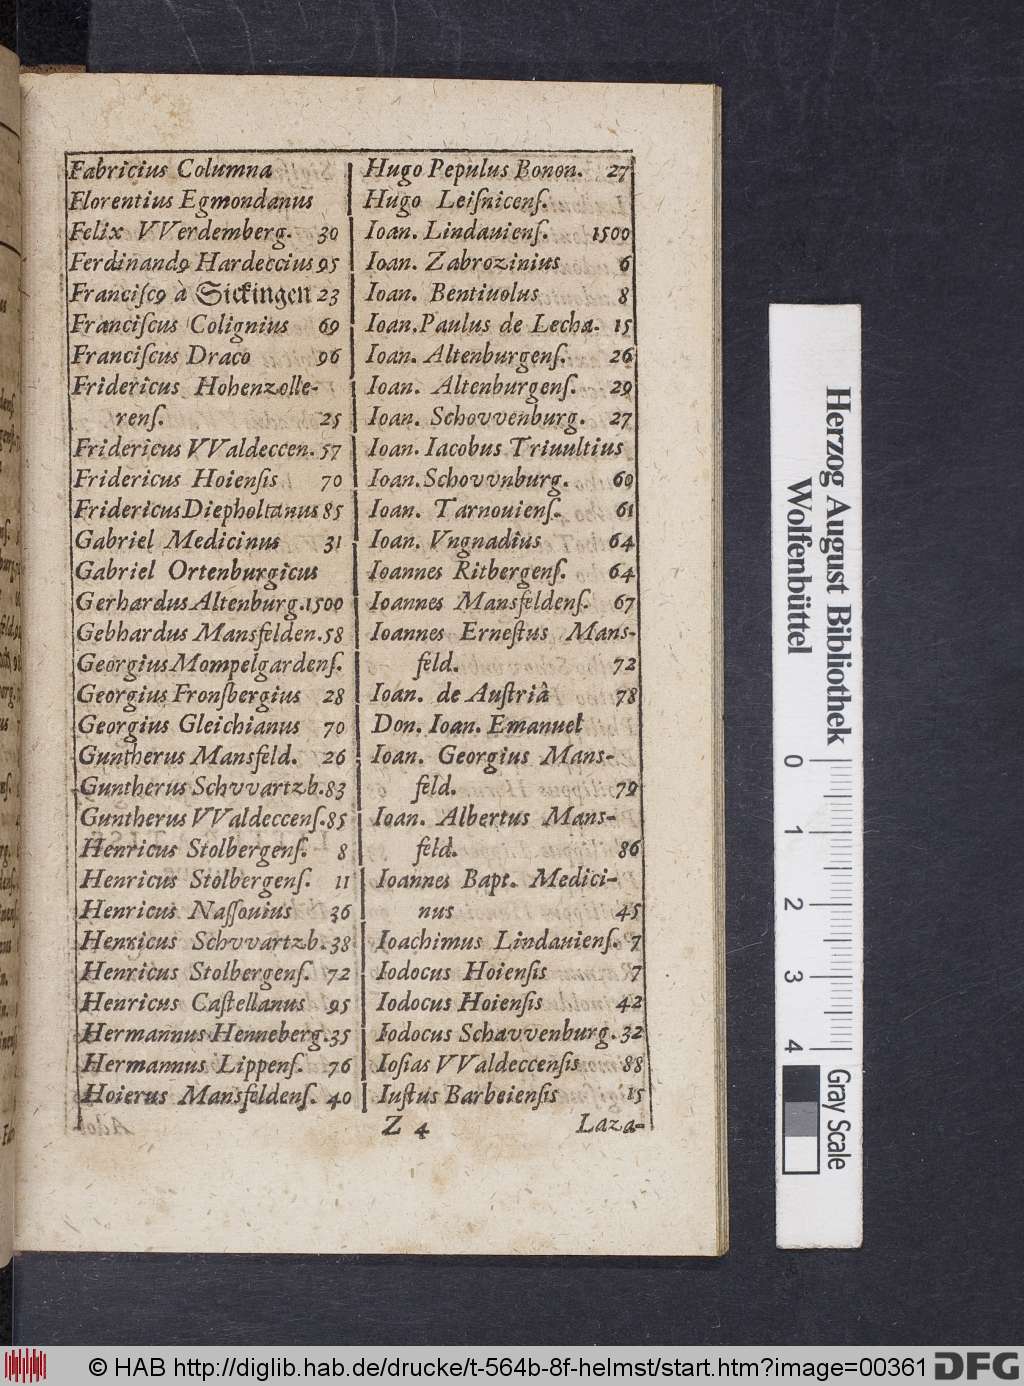 Fabricius Columna
Florentius Egmondanus
Felix VVerdemberg. 30
Ferdinandꝰ Hardeccius 95
Franciſcꝰ à Sickingen 23
Franciſcus Colignius 69
Franciſcus Draco 96
Fridericus Hohenzolle-
renſ. 25
Fridericus VValdeccen. 57
Fridericus Hoienſis 70
Fridericus Diepholtanus 85
Gabriel Medicinus 31
Gabriel Ortenburgicus
Gerhardus Altenburg. 1500
Gebhardus Mansfelden. 58
Georgius Mompelgardenſ.
Georgius Fronſbergius 28
Georgius Gleichianus 70
Guntherus Mansfeld. 26
Guntherus Schvvartzb. 83
Guntherus VValdeccenſ. 85
Henricus Stolbergenſ. 8
Henricus Stolbergenſ. 11
Henricus Naſſouius 36
Henricus Schvvartzb. 38
Henricus Stolbergenſ. 72
Henricus Caſtellanus 95
Hermannus Henneberg. 35
Hermannus Lippenſ. 76
Hoierus Mansfeldenſ. 40
Hugo Pepulus Bonon. 27
Hugo Leiſnicenſ.
Ioan. Lindauienſ. 1500
Ioan. Zabrozinius 6
Ioan. Bentiuolus 8
Ioan. Paulus de Lecha. 15
Ioan. Altenburgenſ. 26
Ioan. Altenburgenſ. 29
Ioan. Schovvenburg. 27
Ioan. Iacobus Triuultius
Ioan. Schovvnburg. 60
Ioan. Tarnouienſ. 61
Ioan. Vngnadius 64
Ioannes Ritbergenſ. 64
Ioannes Mansfeldenſ. 67
Ioannes Erneſtus Mans-
feld. 72
Ioan. de Auſtriâ 78
Don. Ioan. Emanuel
Ioan. Georgius Mans-
feld. 79
Ioan. Albertus Mans-
feld. 86
Ioannes Bapt. Medici-
nus 45
Ioachimus Lindauienſ. 7
Iodocus Hoienſis 7
Iodocus Hoienſis 42
Iodocus Schavvenburg. 32
Ioſias VValdeccenſis 88
Iuſtus Barbeienſis 15
Z 4
Laza-
Herzog August Bibliothek
Wolfenbüttel
0 1 2 3 4
Gray Scale
© HAB http://diglib.hab.de/drucke/t-564b-8f-helmst/start.htm?image=00361
DFG